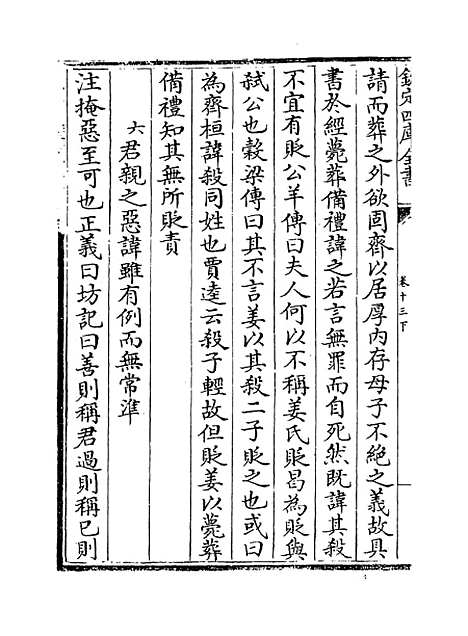 欽定四庫全書
卷十三下
請而葬之外欲固齊以居厚内存母子不絶之義故具
書於經薨葬備禮諱之若言無罪而自死然既諱其殺
不宜有貶公羊傳曰夫人何以不稱姜氏貶曷為貶與
弑公也榖梁傳曰其不言姜以其殺二子貶之也或曰
為齊桓諱殺同姓也賈逵云殺子輕故但貶姜以薨葬
備禮知其無所貶責
六君親之惡諱雖有例而無常準
注掩惡至可也正義曰坊記曰善則稱君過則稱已則